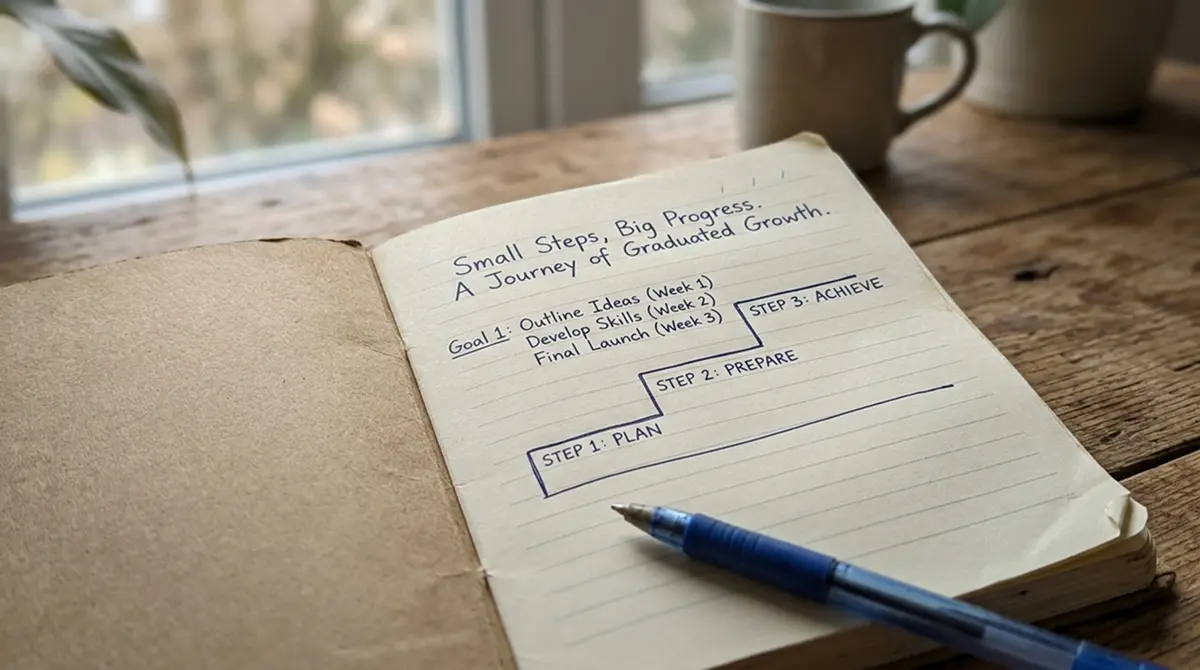 Small Steps, Big Progress.
A Journey of Graduated Growth.
Goal 1: Outline Ideas (Week 1)
Develop Skills (Week 2)
Final Launch (Week 3)
STEP 3: ACHIEVE
STEP 2: PREPARE
STEP 1: PLAN